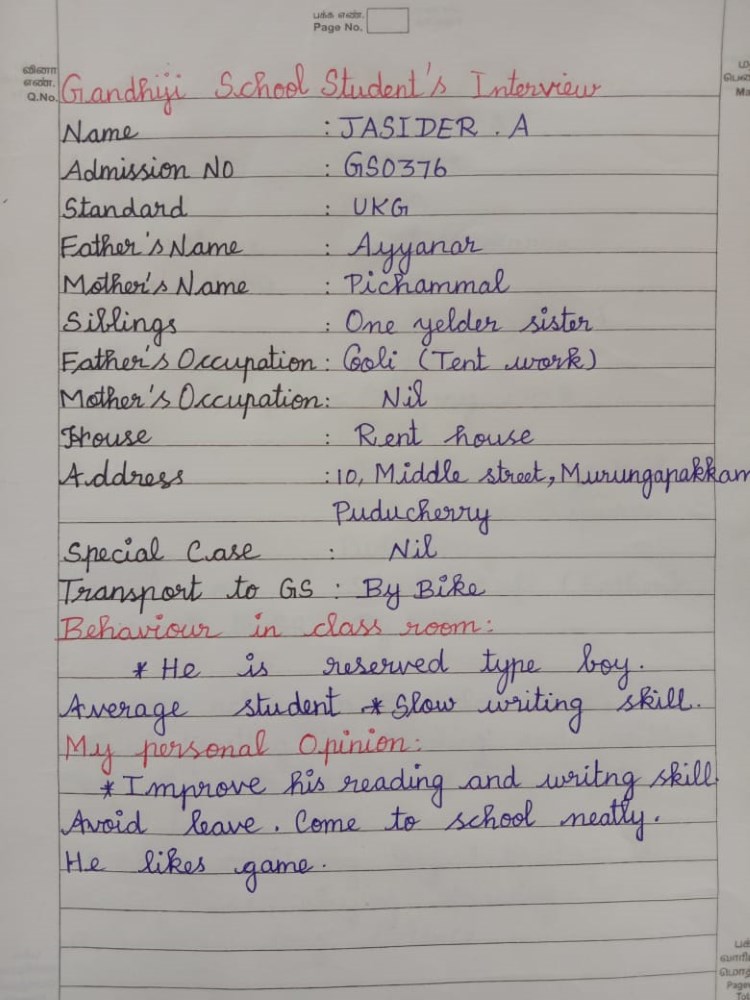 பக்க எண்.
Page No.
வினா
எண்.
Q.No.
Gandhiji School Student's Interview
Name : JASIDER . A
Admission No : GS0376
Standard : UKG
Father's Name : Ayyanar
Mother's Name : Pichammal
Siblings : One yelder sister
Father's Occupation : Cooli (Tent work)
Mother's Occupation: Nil
House : Rent house
Address : 10, Middle street, Murungapakkam
Puducherry
Special Case : Nil
Transport to GS : By Bike
Behaviour in class room:
* He is reserved type boy.
Average student * Slow writing skill.
My personal Opinion:
* Improve his reading and writng skill.
Avoid leave. Come to school neatly.
He likes game.